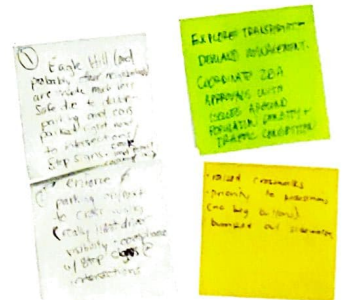 1
Eagle Hill (and
probably other neighborhoods)
are made much less
safe due to
parking and cars
parked right next
to intersections/
stop signs
enforce
parking
to crosswalks
(really
visibility + compliance
w/ stop signs @
intersections
EXPLORE TRANSPORTATION
DEMAND MANAGEMENT.
COORDINATE ZBA
APPROVALS WITH
ISSUES AROUND
POPULATION DENSITY +
TRAFFIC CONGESTION
- raised crosswalks
- priority to pedestrians
(no beg buttons)
bumped out sidewalks